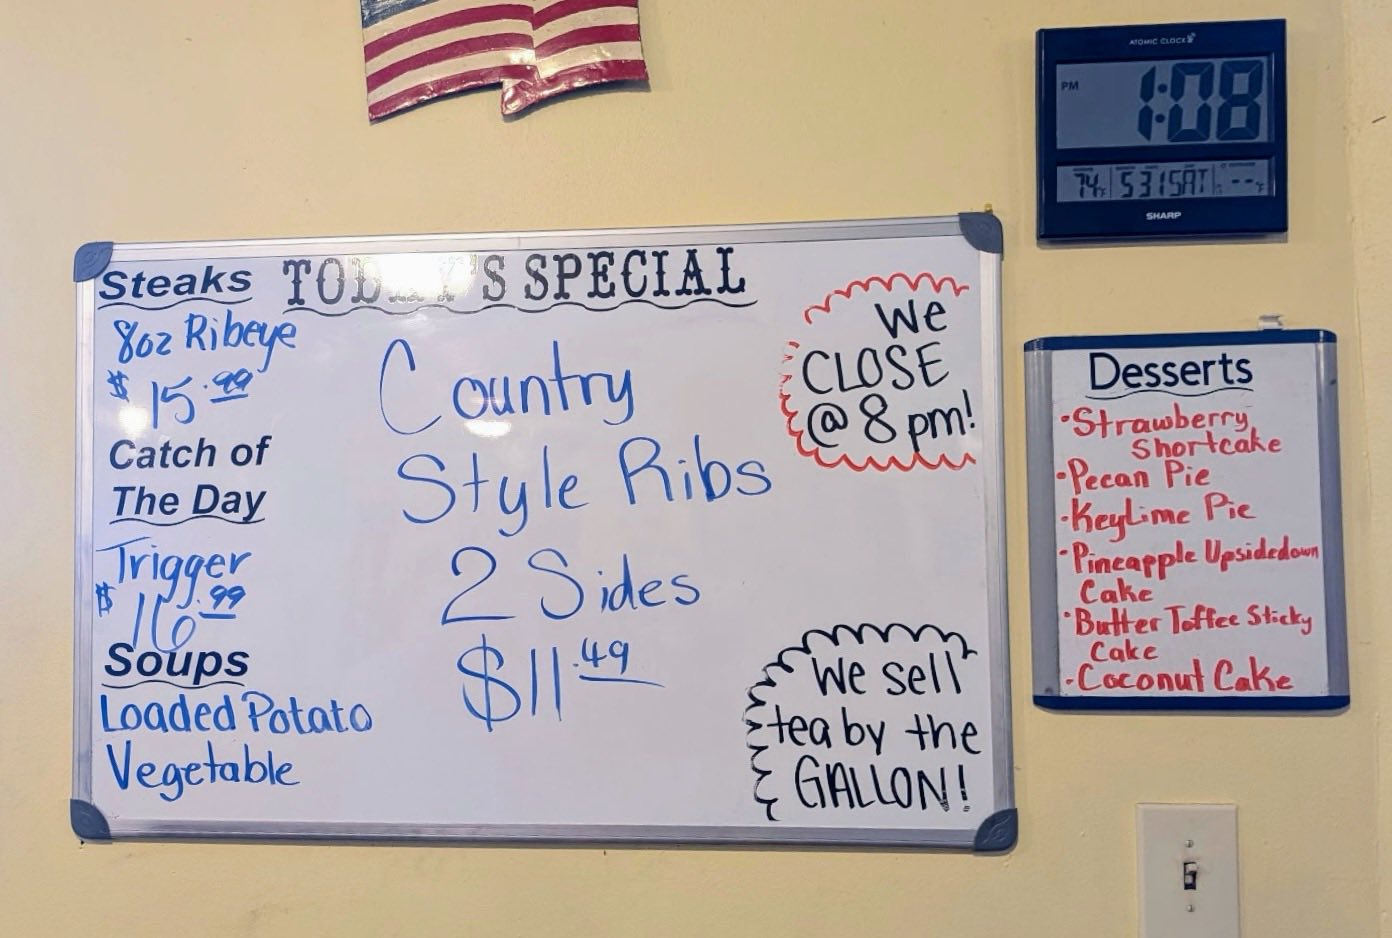 Steaks
8oz Ribeye
$15.99
Catch of
The Day
Trigger
$16.99
Soups
Loaded Potato
Vegetable
TODAY'S SPECIAL
Country
Style Ribs
2 Sides
$11.49
We
CLOSE
@ 8 pm!
We sell
tea by the
GALLON!
ATOMIC CLOCK
PM 1:08
74°F 5 31 SAT --°F
SHARP
Desserts
•Strawberry
Shortcake
•Pecan Pie
•KeyLime Pie
•Pineapple Upsidedown
Cake
•Butter Toffee Sticky
Cake
•Coconut Cake